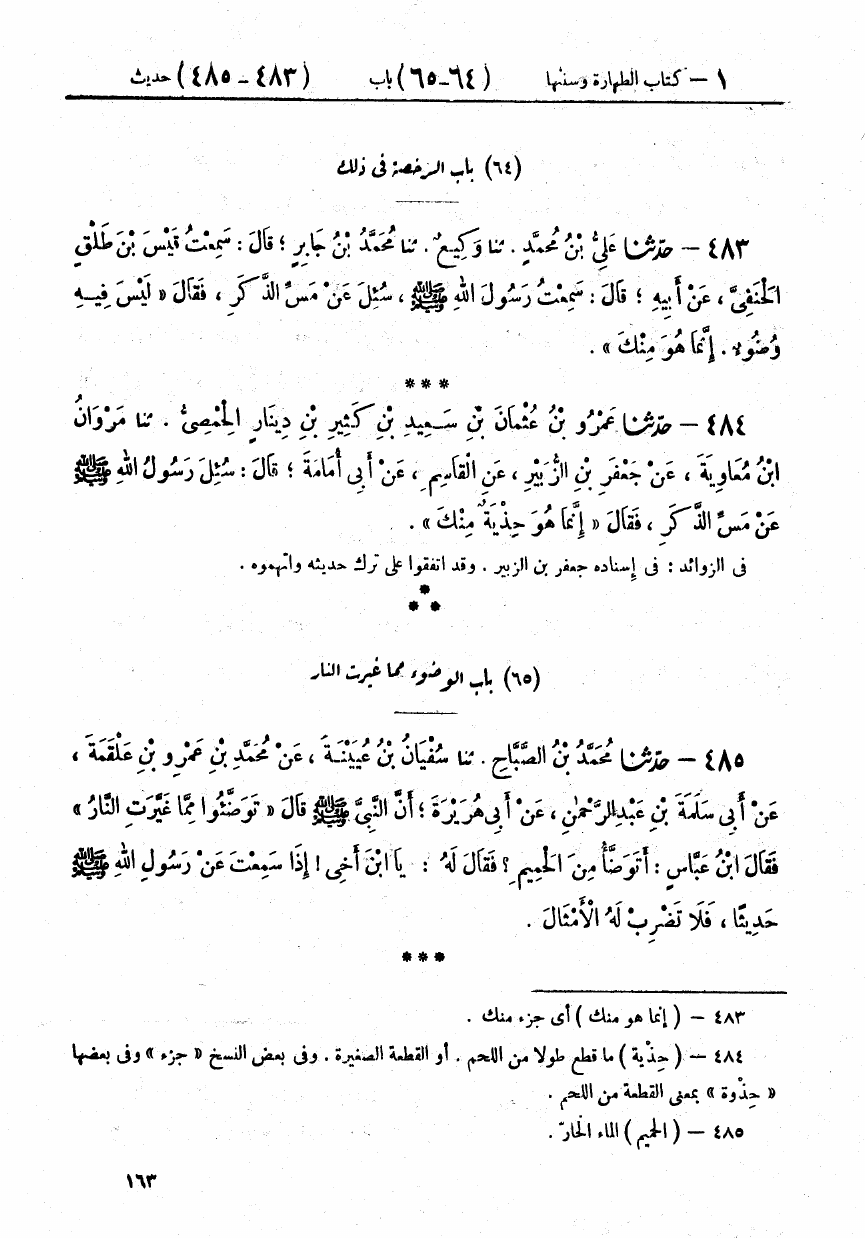 ١ – كتاب الطهارة وسننها (٦٤-٦٥) باب (٤٨٣ - ٤٨٥) حديث
(٦٤) باب الرخصة فى ذلك
٤٨٣ – حدّثنا عَلِيُّ بْنُ مُحَمَّدٍ . ثنا وَكِيعٌ . ثنا مُحَمَّدُ بْنُ جَابِرٍ ؛ قَالَ : سَمِعْتُ قَيْسَ بْنَ طَلْقٍ
الْحَنَفِيَّ ، عَنْ أَبِيهِ ؛ قَالَ : سَمِعْتُ رَسُولَ اللهِ ﷺ ، سُئِلَ عَنْ مَسِّ الذَّكَرِ ، فَقَالَ « لَيْسَ فِيهِ
وُضُوءٌ . إِنَّمَا هُوَ مِنْكَ » .
* * *
٤٨٤ – حدّثنا عَمْرُو بْنُ عُثْمَانَ بْنِ سَعِيدِ بْنِ كَثِيرِ بْنِ دِينَارٍ الْحِمْصِيُّ . ثنا مَرْوَانُ
ابْنُ مُعَاوِيَةَ ، عَنْ جَعْفَرِ بْنِ الزُّبَيْرِ ، عَنِ الْقَاسِمِ ، عَنْ أَبِى أُمَامَةَ ؛ قَالَ : سُئِلَ رَسُولُ اللهِ ﷺ
عَنْ مَسِّ الذَّكَرِ ، فَقَالَ « إِنَّمَا هُوَ حِذْيَةٌ مِنْكَ » .
فى الزوائد : فى إسناده جعفر بن الزبير . وقد اتفقوا على ترك حديثه واتهموه .
* * *
(٦٥) باب الوضوء مما غيرت النار
٤٨٥ – حدّثنا مُحَمَّدُ بْنُ الصَّبَّاحِ . ثنا سُفْيَانُ بْنُ عُيَيْنَةَ ، عَنْ مُحَمَّدِ بْنِ عَمْرِو بْنِ عَلْقَمَةَ ،
عَنْ أَبِى سَلَمَةَ بْنِ عَبْدِ الرَّحْمٰنِ ، عَنْ أَبِى هُرَيْرَةَ ؛ أَنَّ النَّبِىَّ ﷺ قَالَ « تَوَضَّئُوا مِمَّا غَيَّرَتِ النَّارُ »
فَقَالَ ابْنُ عَبَّاسٍ : أَتَوَضَّأُ مِنَ الْحَمِيمِ ؟ فَقَالَ لَهُ : يَا ابْنَ أَخِى ! إِذَا سَمِعْتَ عَنْ رَسُولِ اللهِ ﷺ
حَدِيثًا ، فَلَا تَضْرِبْ لَهُ الْأَمْثَالَ .
* * *
٤٨٣ – ( إنما هو منك ) أى جزء منك .
٤٨٤ – ( حِذْية ) ما قطع طولا من اللحم . أو القطعة الصغيرة . وفى بعض النسخ « جزء » وفى بعضها
« حِذْوة » بمعنى القطعة من اللحم .
٤٨٥ – ( الحميم ) الماء الحارّ .
١٦٣